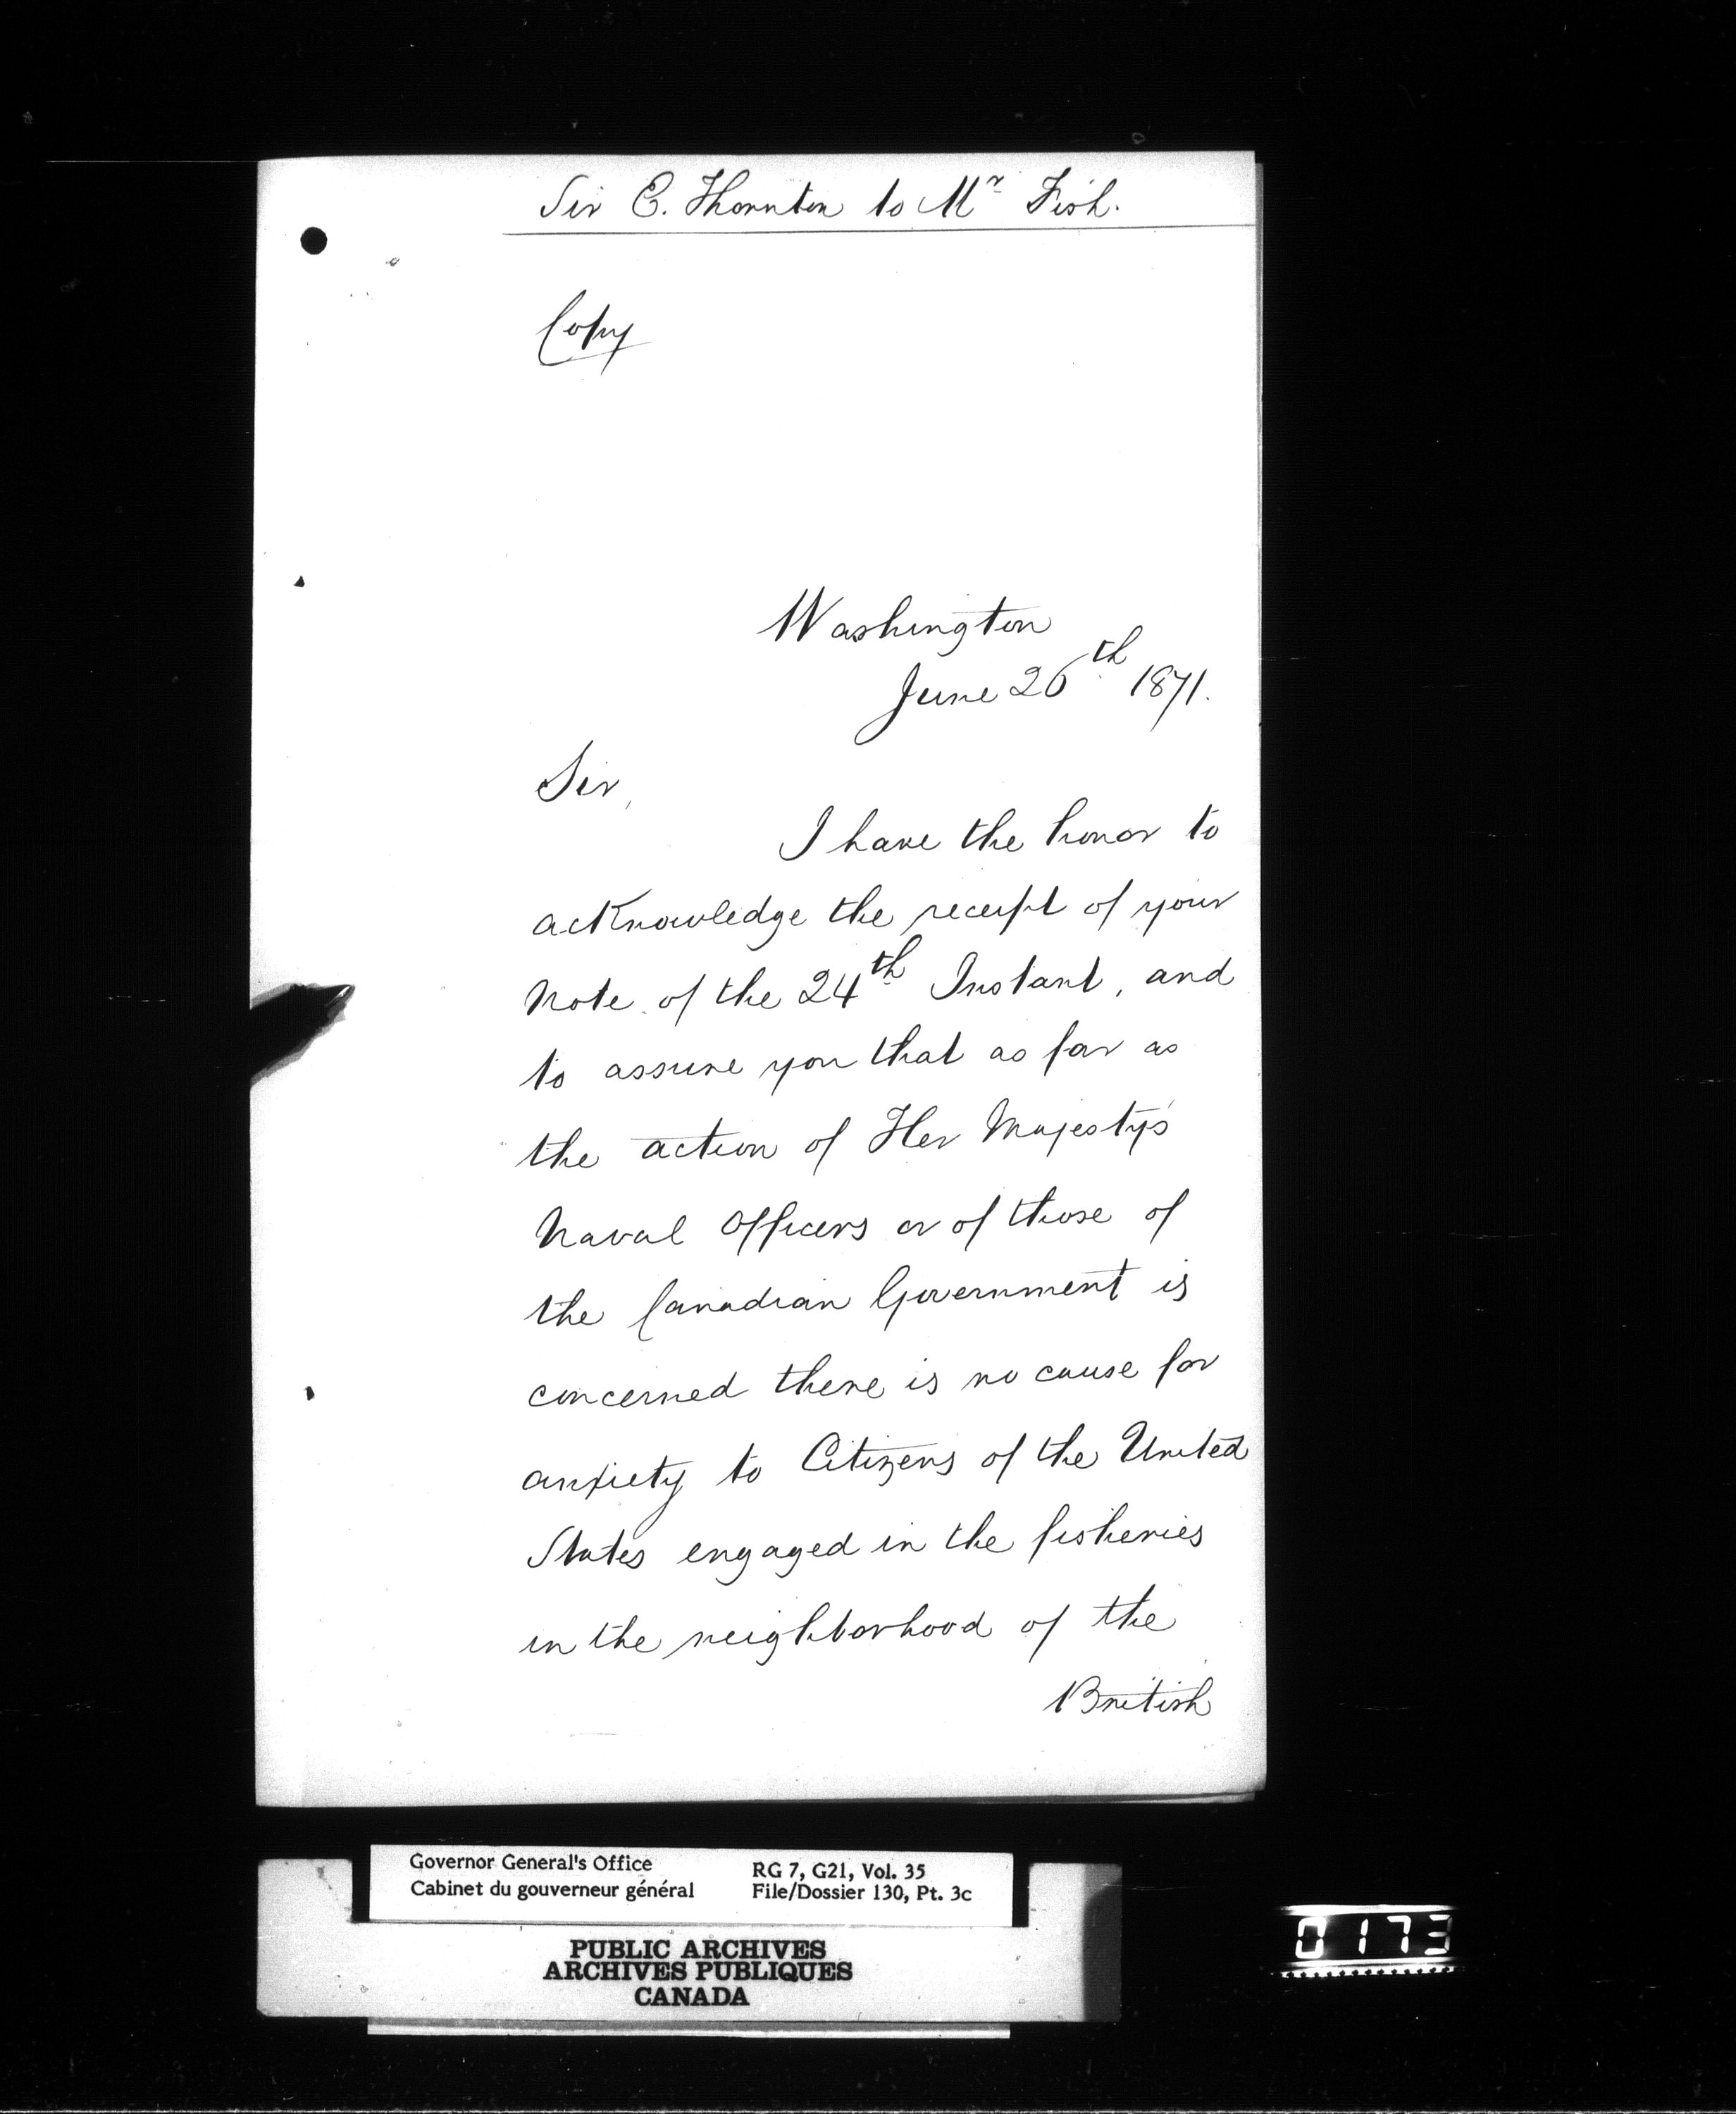 Sir E. Thornton to Mr Fish.
Copy
Washington
June 26th 1871.
Sir,
I have the honor to
acknowledge the receipt of your
Note of the 24th Instant, and
to assure you that as far as
the action of Her Majesty's
Naval Officers or of those of
the Canadian Government is
concerned there is no cause for
anxiety to Citizens of the United
States engaged in the fisheries
in the neighborhood of the
British
Governor General's Office
Cabinet du gouverneur général
RG 7, G21, Vol. 35
File/Dossier 130, Pt. 3c
PUBLIC ARCHIVES
ARCHIVES PUBLIQUES
CANADA
0173